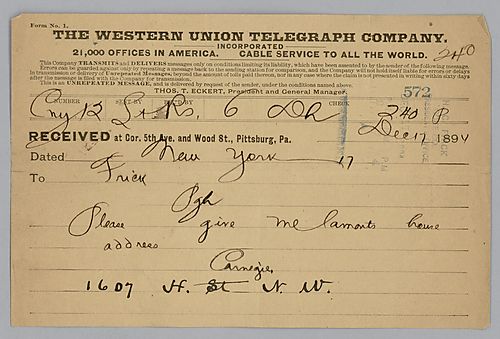 Form No. 1.
THE WESTERN UNION TELEGRAPH COMPANY.
INCORPORATED
21,000 OFFICES IN AMERICA. CABLE SERVICE TO ALL THE WORLD.
This Company TRANSMITS and DELIVERS messages only on conditions limiting its liability, which have been assented to by the sender of the following message.
Errors can be guarded against only by repeating a message back to the sending station for comparison, and the Company will not hold itself liable for errors or delays
in transmission or delivery of Unrepeated Messages, beyond the amount of tolls paid thereon, nor in any case where the claim is not presented in writing within sixty days
after the message is filed with the Company for transmission.
This is an UNREPEATED MESSAGE, and is delivered by request of the sender, under the conditions named above.
THOS. T. ECKERT, President and General Manager.
572
NUMBER SENT BY REC'D BY CHECK
13 6 Dh 340 P
RECEIVED at Cor. 5th Ave. and Wood St., Pittsburg, Pa. Dec 17 1894
Dated New York 17
To Frick
Pgh
Please give me lamonts house
address
Carnegie,
1607 H. St N. W.